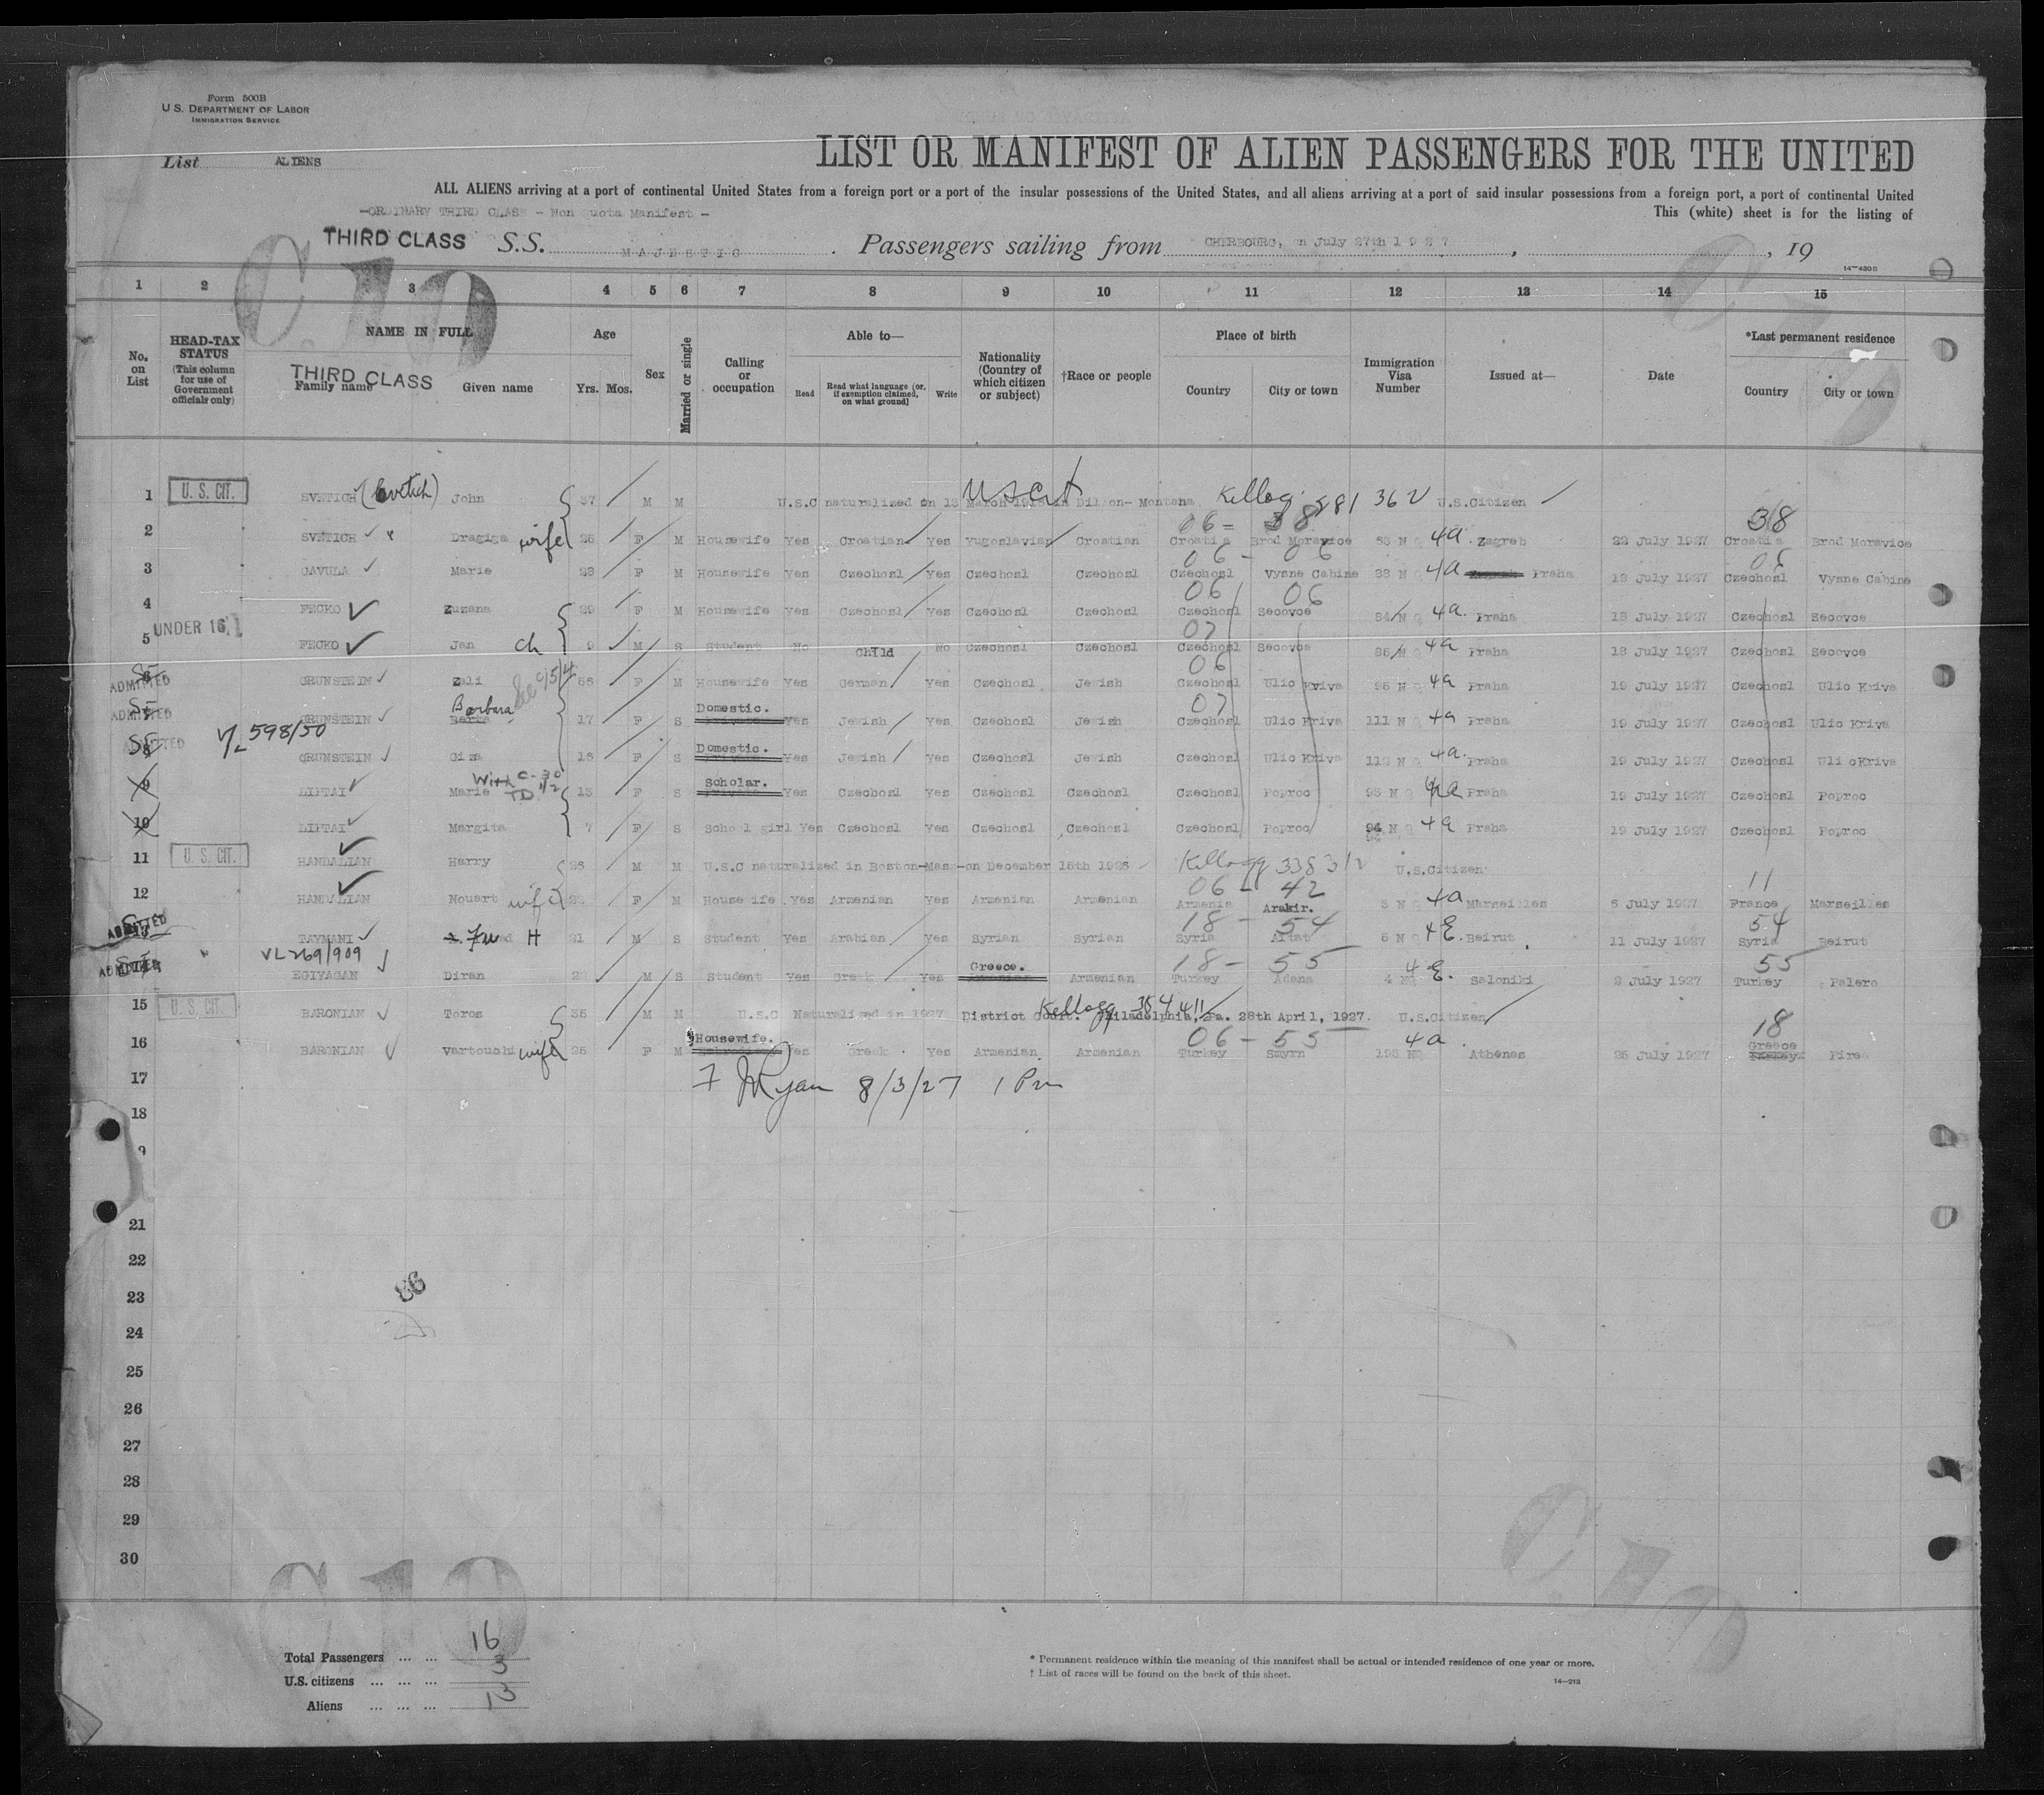 Form 500B
U.S. DEPARTMENT OF LABOR
IMMIGRATION SERVICE
List ALIENS
LIST OR MANIFEST OF ALIEN PASSENGERS FOR THE UNITED
ALL ALIENS arriving at a port of continental United States from a foreign port or a port of the insular possessions of the United States, and all aliens arriving at a port of said insular possessions from a foreign port, a port of continental United
-ORDINARY THIRD CLASS - Non Quota Manifest -
This (white) sheet is for the listing of
THIRD CLASS S.S. MAJESTIC. Passengers sailing from CHERBOURG, on July 27th 1927, , 19
14-430B
C 10
1 2 3 4 5 6 7 8 9 10 11 12 13 14 15
No. on List
HEAD-TAX STATUS (This column for use of Government officials only)
NAME IN FULL
THIRD CLASS
Family name Given name
Age Yrs. Mos.
Sex
Married or single
Calling or occupation
Able to—
Read Read what language (or, if exemption claimed, on what ground) Write
Nationality (Country of which citizen or subject)
†Race or people
Place of birth
Country City or town
Immigration Visa Number
Issued at—
Date
*Last permanent residence
Country City or town
1 U.S. CIT. SVETICH John 37 M M U.S.C naturalized on 13 March 1918 in Dillon- Montana USCit Kellog 281 362 U.S.Citizen
06 - 38 38
2 SVETICH wife 25 F M Housewife Yes Croatian Yes Yugoslavian Croatian Croatia Brod Moravice 63 N Q 4a. Zagreb 22 July 1927 Croatia Brod Moravice
06 - 06 06
3 CAVULA Marie 23 F M Housewife Yes Czechosl Yes Czechosl Czechosl Czechosl Vysne Cabine 88 N Q 4a Praha 18 July 1927 Czechosl Vysne Cabine
06 06
4 FECKO Zuzana 29 F M Housewife Yes Czechosl Yes Czechosl Czechosl Czechosl Secovce 84 N Q 4a. Praha 18 July 1927 Czechosl Secovce
UNDER 16
07
5 FECKO Jan ch 9 M S Student No Child No Czechosl Czechosl Czechosl Secovce 85 N Q 4a Praha 18 July 1927 Czechosl Secovce
06
6 ADMITTED GRUNSTEIN Zali 56 F M Housewife Yes German Yes Czechosl Jewish Czechosl Ulic Kriva 95 N Q 4a Praha 19 July 1927 Czechosl Ulic Kriva
Barbara Domestic. 07
ADMITTED GRUNSTEIN Berta 17 F S Yes Jewish Yes Czechosl Jewish Czechosl Ulic Kriva 111 N Q 4a Praha 19 July 1927 Czechosl Ulic Kriva
VL 598/50 Domestic.
8 ADMITTED GRUNSTEIN Giza 16 F S Yes Jewish Yes Czechosl Jewish Czechosl Ulic Kriva 112 N Q 4a. Praha 19 July 1927 Czechosl Ulic Kriva
Scholar.
9 LIPTAI Marie 13 F S Yes Czechosl Yes Czechosl Czechosl Czechosl Poproc 93 N Q 4a Praha 19 July 1927 Czechosl Poproc
10 LIPTAI Margita 7 F S School girl Yes Czechosl Yes Czechosl Czechosl Czechosl Poproc 94 N Q 4a Praha 19 July 1927 Czechosl Poproc
11 U.S. CIT. HANDALIAN Harry 26 M M U.S.C naturalized in Boston-Mass-on December 15th 1926 Kellogg 338312 U.S.Citizen
06 - 42 11
12 HANDALIAN Nouart wife F M Housewife Yes Armenian Yes Armenian Armenian Armenia Arakir. N Q 4a Marseilles 6 July 1927 France Marseilles
18 - 54 54
13 ADMITTED TAYMANI H 21 M S Student Yes Arabian Yes Syrian Syrian Syria Aitat 5 N Q 4E. Beirut 11 July 1927 Syria Beirut
VL 269/909 Greece. 18 - 55 55
ADMITTED EGIYAGAN Diran M S Student Yes Greek Yes Armenian Turkey Adana 4 NQ 4E. Saloniki 2 July 1927 Turkey Palero
15 U.S. CIT. BARONIAN Toros 35 M M U.S.C Naturalized in 1927 District Court. Philadelphia, Pa. 28th April, 1927. Kellogg 354411 U.S.Citizen
Housewife. 06 - 55 4a. 18 Greece
16 BARONIAN Vartouchi wife 25 F M Yes Greek Yes Armenian Armenian Turkey Smyrn 193 NQ Athenes 25 July 1927 Pirea
17 F J Ryan 8/3/27 1 Pm
18
9
21
22
23
86
24
25
26
27
28
29
30
C10
Total Passengers 16
U.S. citizens 3
Aliens 13
* Permanent residence within the meaning of this manifest shall be actual or intended residence of one year or more.
† List of races will be found on the back of this sheet.
14-213